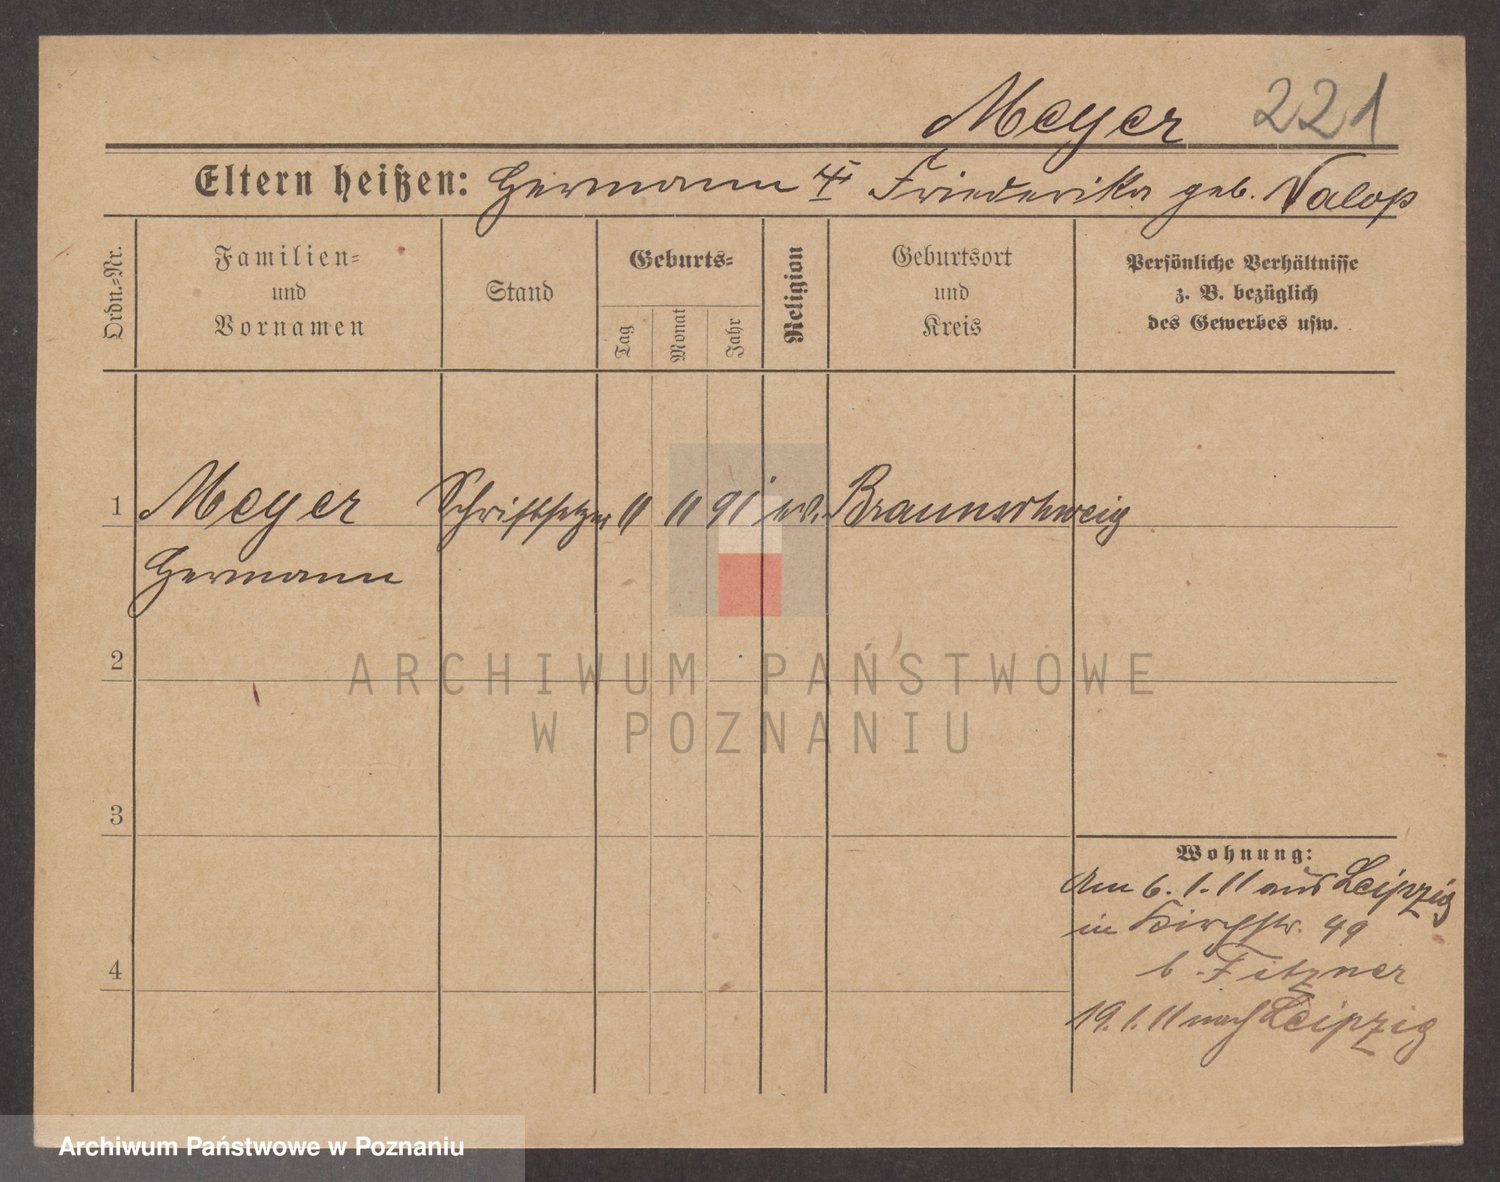 Meyer 221
Eltern heißen: Hermann Friederika geb. Valop
Ordn.-Nr.
Familien- und Vornamen
Stand
Geburts-
Tag
Monat
Jahr
Religion
Geburtsort und Kreis
Persönliche Verhältnisse z. B. bezüglich des Gewerbes usw.
1 Meyer Schriftsetzer 11 11 91 ev. Braunschweig
Hermann
2
3
4
Wohnung:
Am 6. 1. 11 aus Leipzig
in Kirchstr. 49
b. Fitzner
19. 1. 11 nach Leipzig
ARCHIWUM PAŃSTWOWE
W POZNANIU
Archiwum Państwowe w Poznaniu